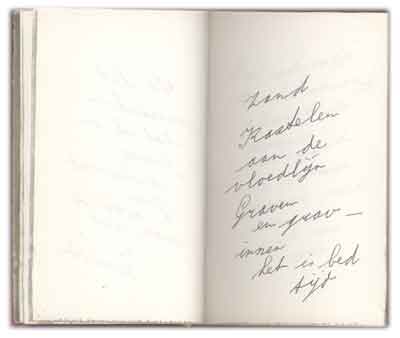 zand
Kastelen
aan de
vloedlijn
Graven
en grav—
innen
het is bed
tijd